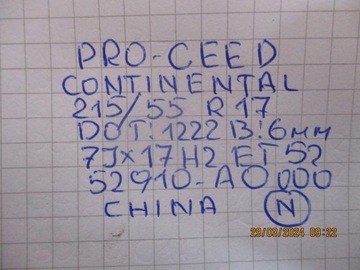 PRO-CEED
CONTINENTAL
215/55 R17
DOT:1222 B:6мм
7J×17H2 ET 52
52910-A0000
CHINA N
29/03/2024 09:22